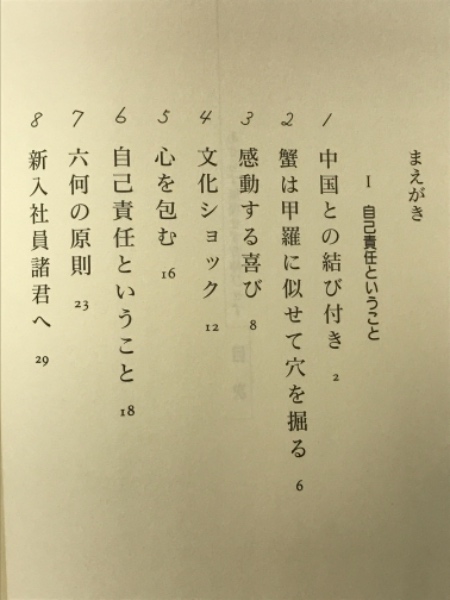 まえがき
I 自己責任ということ
1 中国との結び付き 2
2 蟹は甲羅に似せて穴を掘る 6
3 感動する喜び 8
4 文化ショック 12
5 心を包む 16
6 自己責任ということ 18
7 六何の原則 23
8 新入社員諸君へ 29